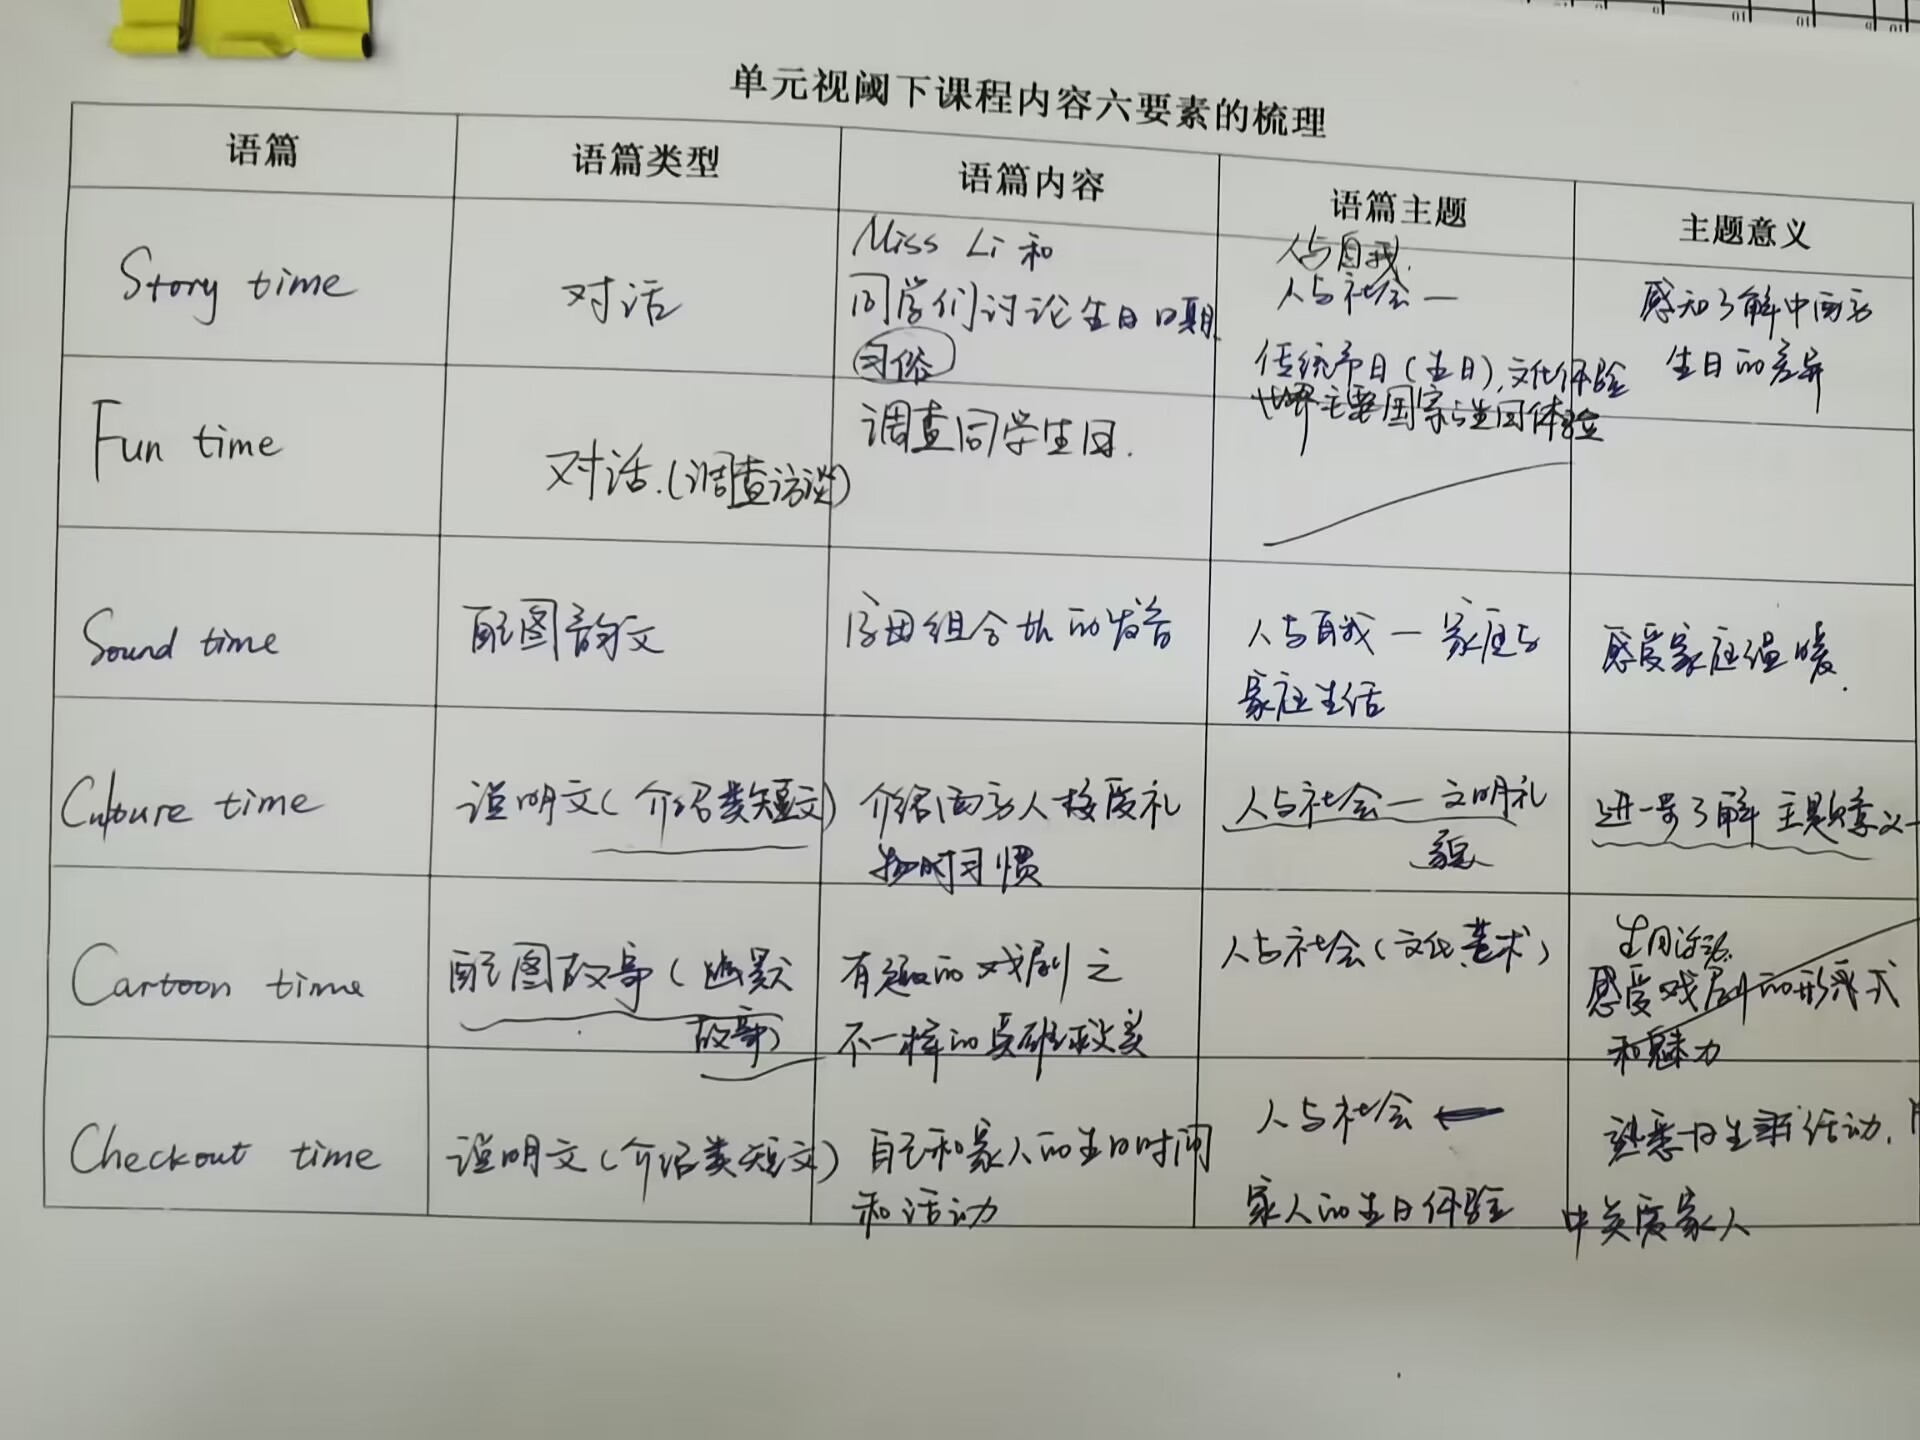 单元视阈下课程内容六要素的梳理
语篇
语篇类型
语篇内容
语篇主题
主题意义
Story time
对话
Miss Li 和
同学们讨论生日日期
习俗
人与自我.
人与社会一
传统节日(生日),文化体验
世界主要国家
感知了解中西方
生日的差异
Fun time
对话.(调查访谈)
调查同学生日.
Sound time
配图韵文
字母组合th的发音
人与自我 一 家庭与
家庭生活
感受家庭温暖.
Culture time
说明文(介绍类短文)
介绍西方人接受礼
物时习惯
人与社会一文明礼
貌
进一步了解 主题意义
Cartoon time
配图故事(幽默
故事)
有趣的戏剧之
不一样的英雄救美
人与社会(文化艺术)
感受戏剧的形式
和魅力
Checkout time
说明文(介绍类短文)
自己和家人的生日时间
和活动
人与社会
家人的生日体验
熟悉生活动.
家人